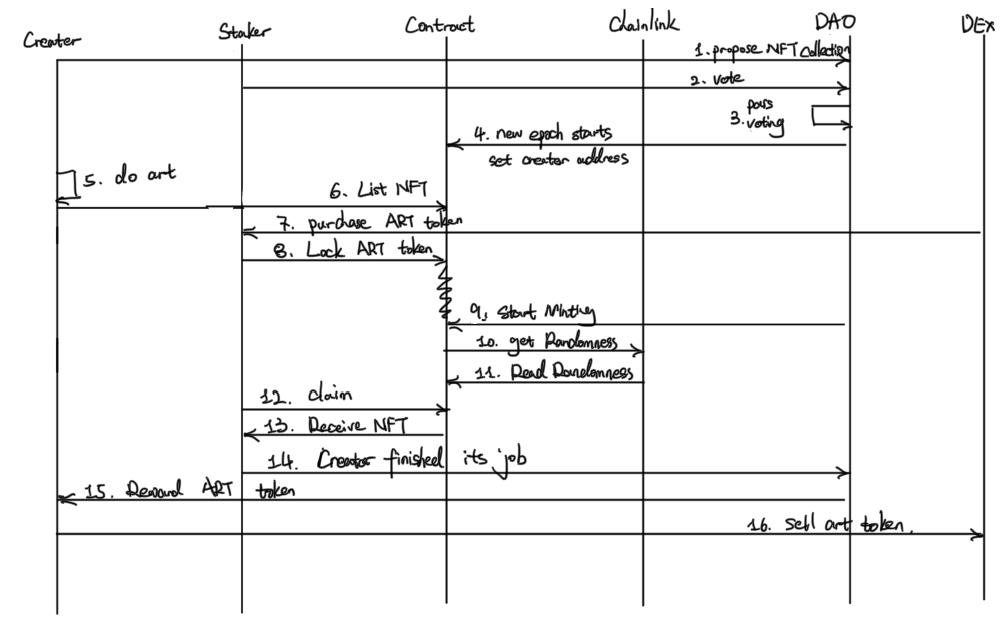 Creater
Staker
Contract
Chainlink
DAO
DEX
1. propose NFT Collection
2. vote
3. pass
voting
4. new epoch starts
set creator address
5. do art
6. List NFT
7. purchase ART token
8. Lock ART token
9. Start Minting
10. get Randomness
11. Read Randomness
12. claim
13. Receive NFT
14. Creator finished its job
15. Reward ART token
16. sell art token.